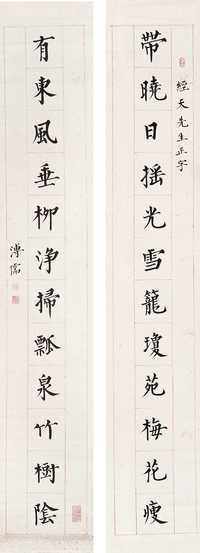 經天先生正字
帶曉日摇光雪籠瓊苑梅花瘦
有東風垂柳淨掃瓢泉竹樹陰
溥儒